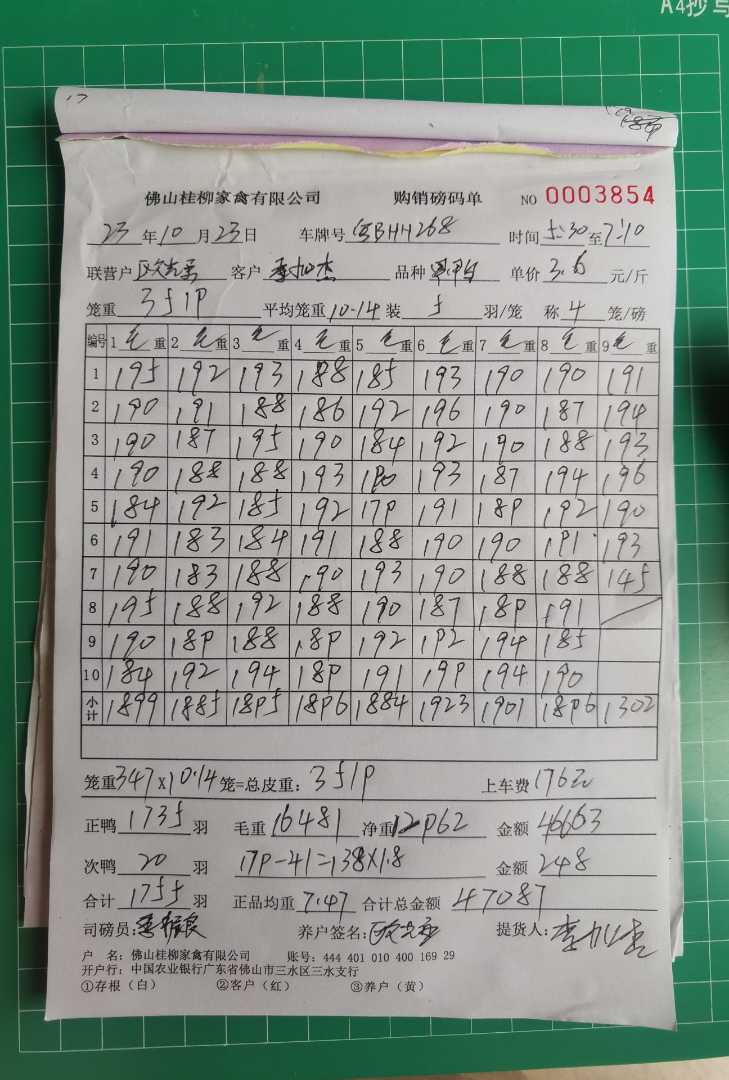 A4抄写
佛山桂柳家禽有限公司 购销磅码单 NO 0003854
23年10月23日 车牌号 粤BHH268 时间 5:30至7:10
联营户 客户 品种 单价 3.6 元/斤
笼重 3519 平均笼重 10.14 装 5 羽/笼 称 4 笼/磅
编号 1 毛重 2 毛重 3 毛重 4 毛重 5 毛重 6 毛重 7 毛重 8 毛重 9 毛重
1 195 192 193 188 185 193 190 190 191
2 190 191 188 186 192 196 190 187 194
3 190 187 195 190 184 192 190 188 193
4 190 188 188 193 190 193 187 194 196
5 184 192 185 192 179 191 189 192 190
6 191 183 184 191 188 190 190 191 193
7 190 183 188 190 193 190 188 188 145
8 195 188 192 188 190 187 189 191
9 190 189 188 189 192 192 194 185
10 184 192 194 189 191 199 194 190
小计 1899 1885 1895 1896 1884 1923 1901 1896 1302
笼重347×10.14笼=总皮重: 3519 上车费 1762
正鸭 1735 羽 毛重 16481 净重 12962 金额 46663
次鸭 20 羽 179-41=138×1.8 金额 248
合计 1755 羽 正品均重 7.47 合计总金额 47087
司磅员: 养户签名: 提货人:
户 名: 佛山桂柳家禽有限公司 账号: 444 401 010 400 169 29
开户行: 中国农业银行广东省佛山市三水区三水支行
①存根（白） ②客户（红） ③养户（黄）